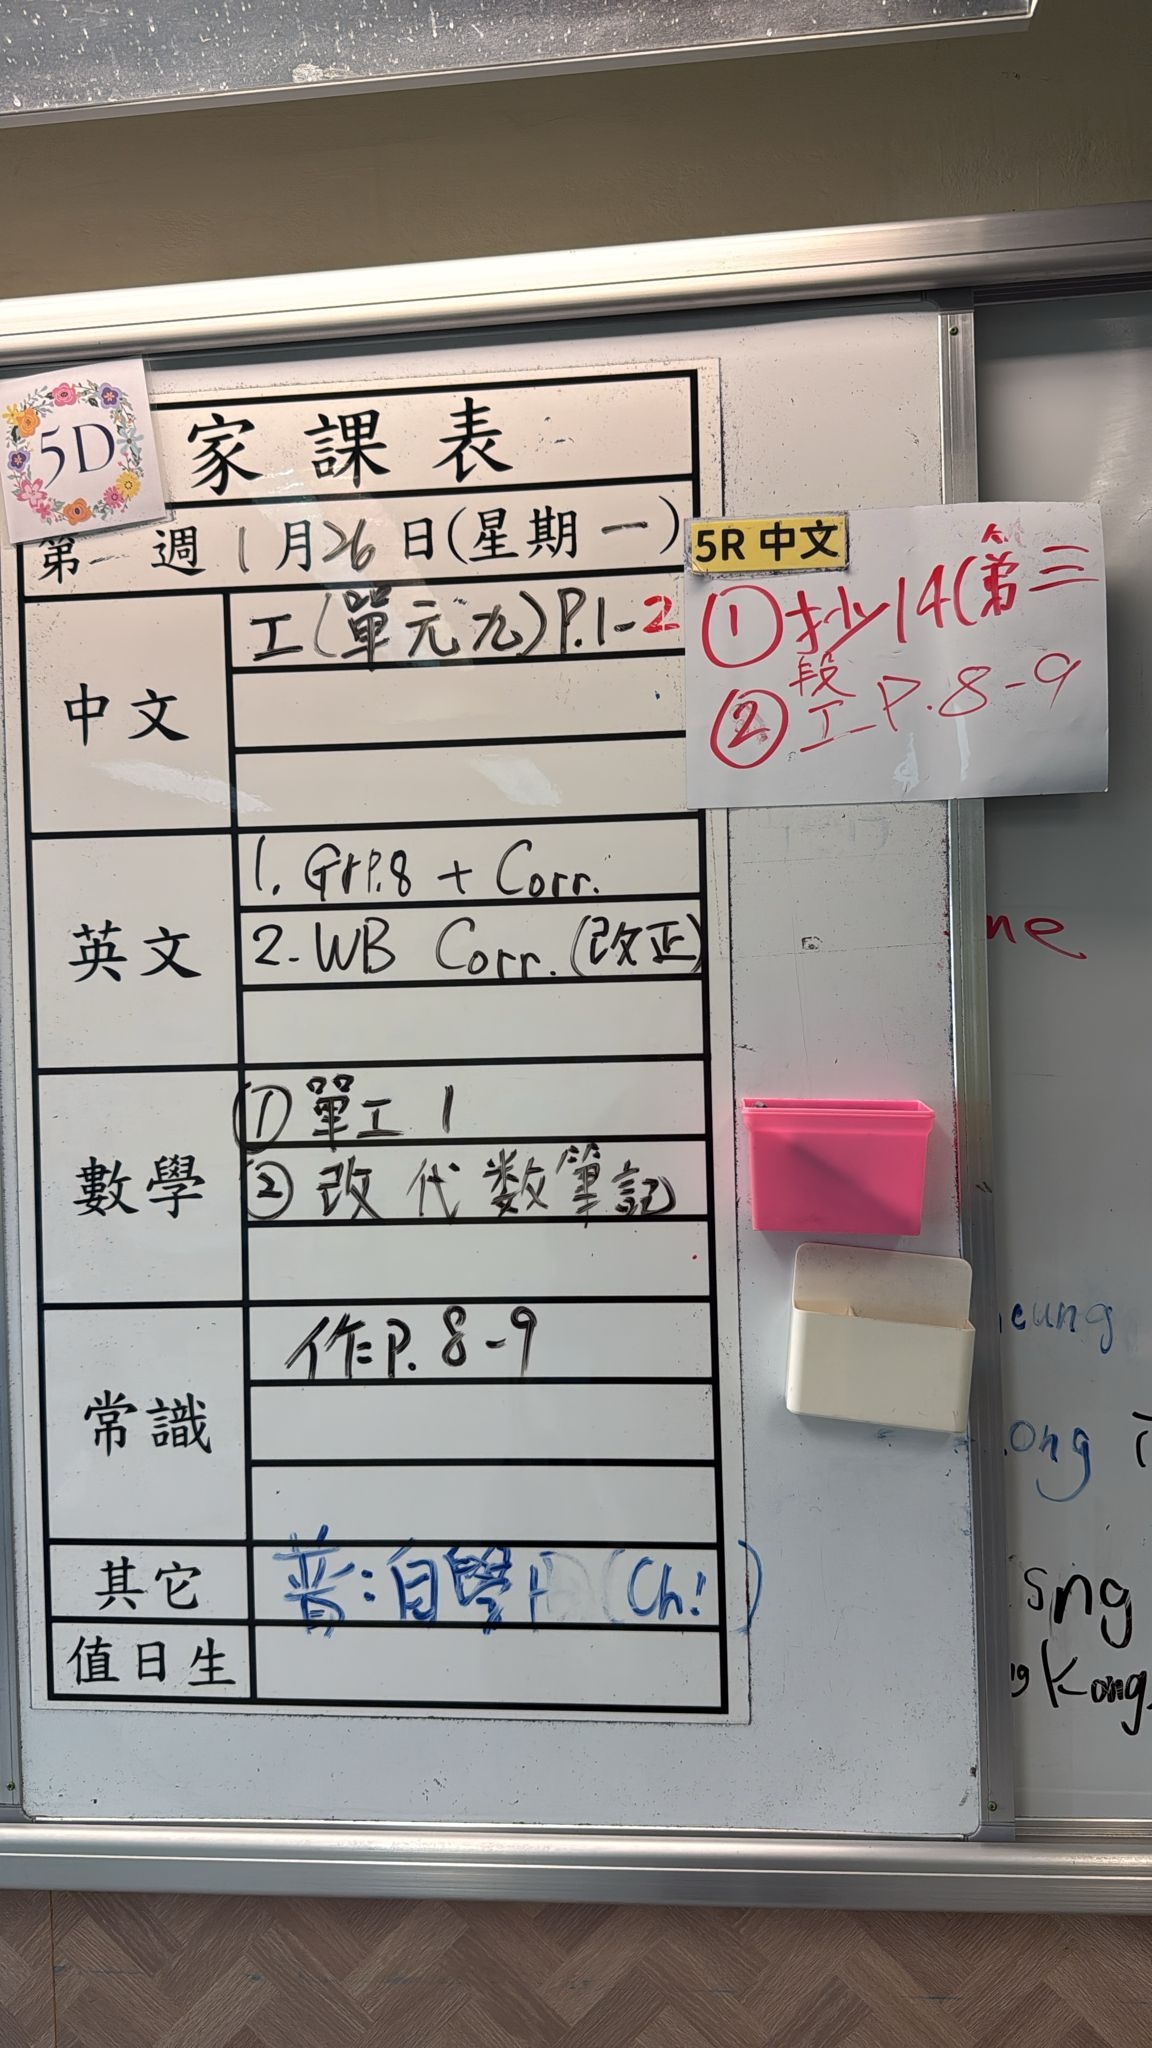 5D
家課表
第一週1月26日(星期一)
中文
工(單元九)P.1-2
英文
1. Gr P.8 + Corr.
2. WB Corr. (改正)
數學
① 單工 1
② 改代数筆記
常識
作P. 8-9
其它
普:自學 (Ch!)
值日生
5R 中文
① 抄14(第三
段
② 工 P.8-9
ne
eung
ong
sng
Kong